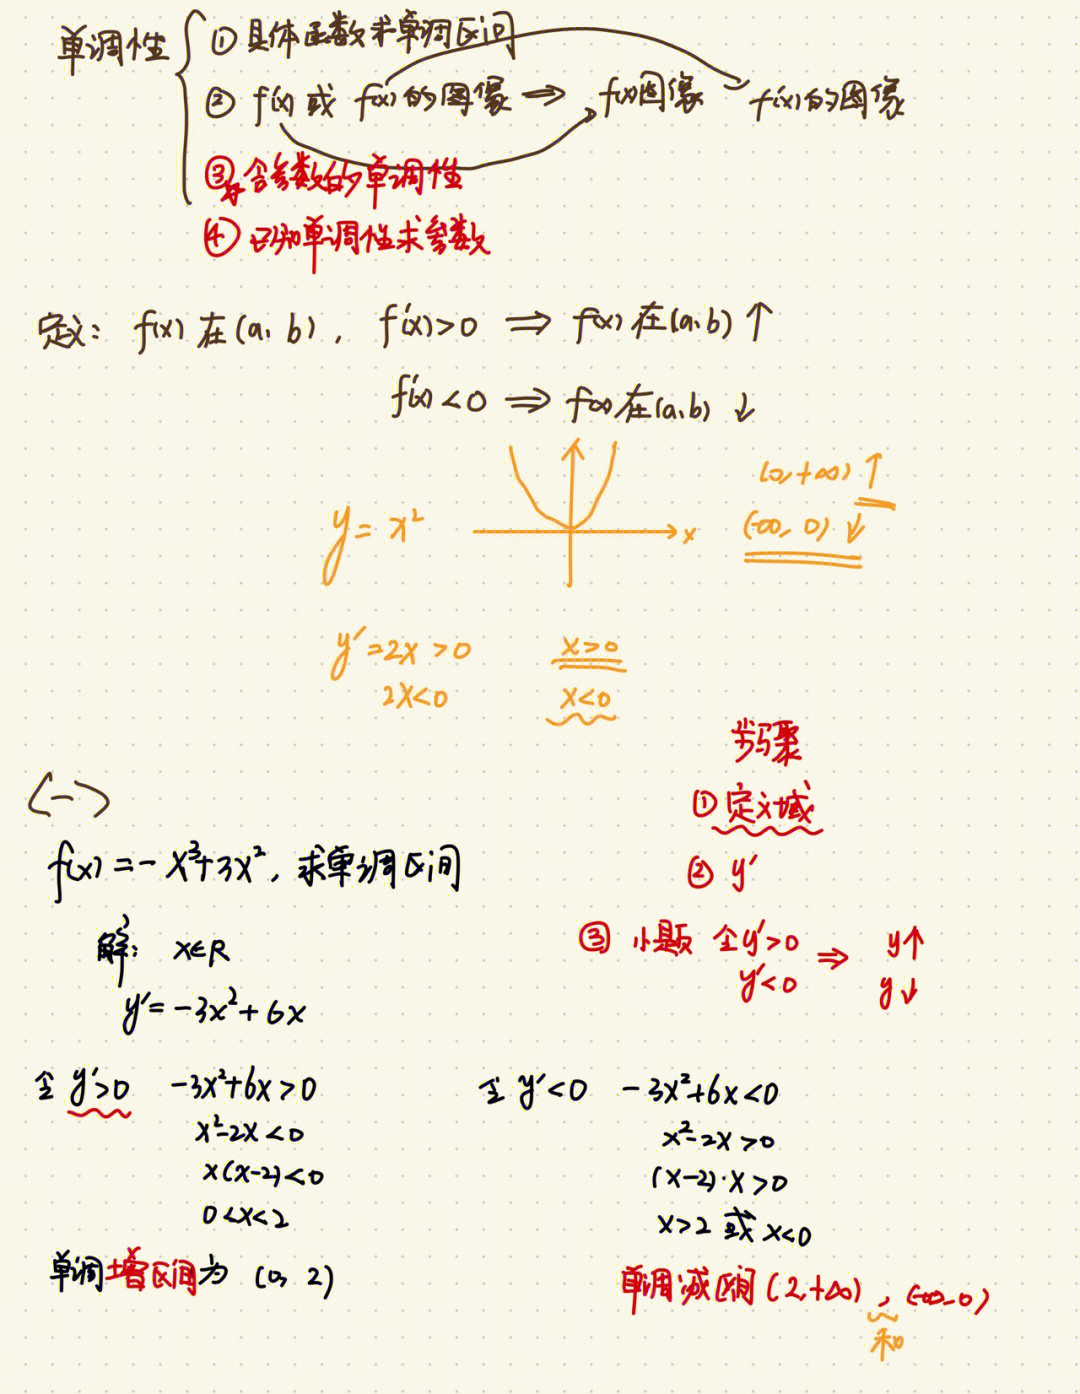 单调性
① 具体函数求单调区间
② f'(x) 或 f(x) 的图像 ⇒ f(x)图像 f'(x)的图像
③ 含参数的单调性
④ 已知单调性求参数
定义: f(x) 在(a, b), f'(x)>0 ⇒ f(x) 在(a,b) ↑
f'(x)<0 ⇒ f(x) 在(a,b) ↓
y = x²
x
(0,+∞) ↑
(-∞, 0) ↓
y'=2x>0 x>0
2x<0 x<0
步骤
① 定义域
② y'
③ 小题 令y'>0 ⇒ y↑
y'<0 y↓
<一>
f(x)=-x³+3x², 求单调区间
解: x∈R
y'=-3x²+6x
令 y'>0 -3x²+6x>0
x²-2x<0
x(x-2)<0
0<x<2
单调增区间为 (0, 2)
令 y'<0 -3x²+6x<0
x²-2x>0
(x-2)·x>0
x>2 或 x<0
单调减区间 (2,+∞), (-∞,0)
和